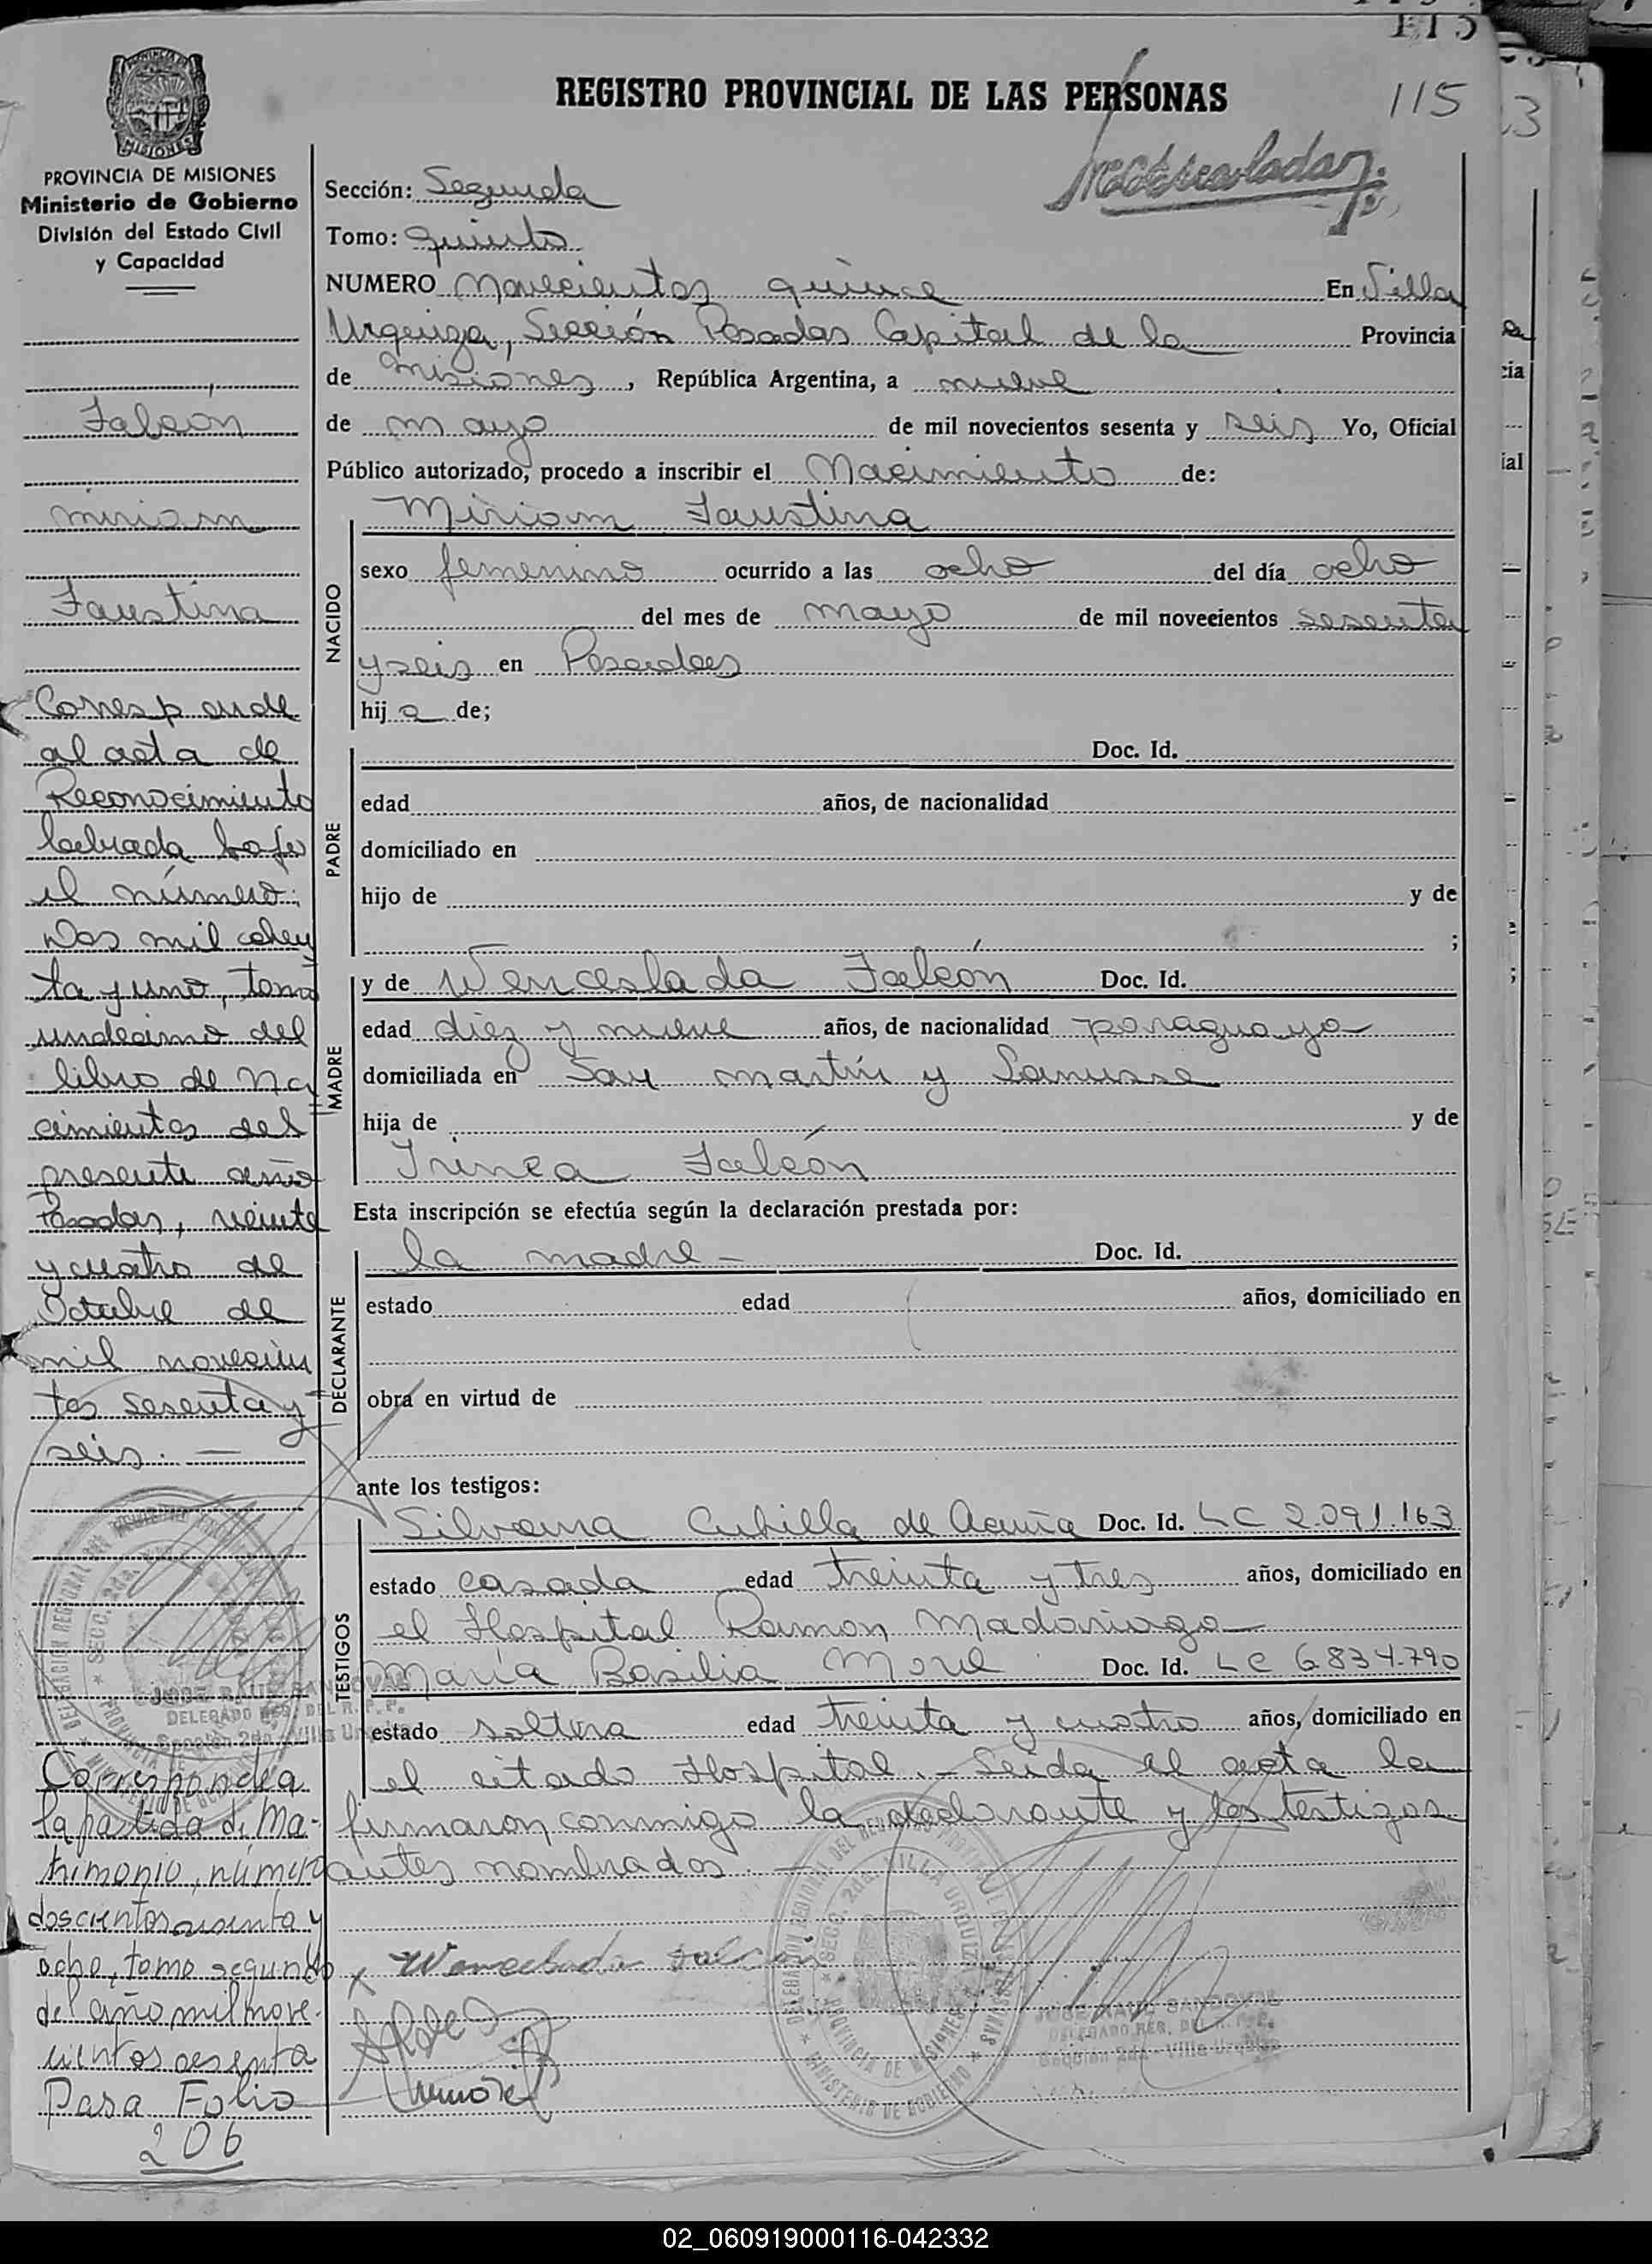 115
REGISTRO PROVINCIAL DE LAS PERSONAS
115
PROVINCIA DE MISIONES
Ministerio de Gobierno
División del Estado Civil
y Capacidad
Falcón
Miriam
Faustina
Corresponde
al acta de
Reconocimiento
labrada bajo
el número:
Dos mil ochen
ta y uno, tomo
undecimo del
libro de Na
cimientos del
presente año
Posadas, veinte
y cuatro de
Octubre de
mil novecien
tos sesenta y
seis. —
Corresponde a
la partida de Ma-
trimonio, número
doscientos
ocho, tomo segundo
del año mil nove-
cientos sesenta
Pasa Folio
206
Sección: Segunda
Tomo: Quinto
NUMERO Novecientos quince En Villa
Urquiza, Sección Posadas Capital de la Provincia
de Misiones, República Argentina, a nueve
de mayo de mil novecientos sesenta y seis Yo, Oficial
Público autorizado, procedo a inscribir el Nacimiento de:
NACIDO
Miriam Faustina
sexo femenino ocurrido a las ocho del día ocho
del mes de mayo de mil novecientos sesenta
y seis en Posadas
hij a de;
PADRE
Doc. Id.
edad años, de nacionalidad
domiciliado en
hijo de y de
;
MADRE
y de Wenceslada Falcón Doc. Id.
edad diez y nueve años, de nacionalidad paraguaya
domiciliada en San Martín y Lanusse
hija de y de
Irinea Falcón
Esta inscripción se efectúa según la declaración prestada por:
DECLARANTE
la madre — Doc. Id.
estado edad años, domiciliado en
obra en virtud de
ante los testigos:
TESTIGOS
Silvana Cubilla de Acuña Doc. Id. LC 2.091.163
estado casada edad treinta y tres años, domiciliado en
el Hospital Ramon Madariaga
María Basilia More Doc. Id. LC 6834.790
estado soltera edad treinta y cuatro años, domiciliado en
el citado Hospital. — Leida el acta la
firmaron conmigo la declarante y los testigos
antes nombrados. —
x Wenceslada Falcón
DELEGACION REGIONAL DEL REGISTRO PROVINCIAL DE LAS PERSONAS
SECC. 2da. VILLA URQUIZA
PROVINCIA DE MISIONES
MINISTERIO DE GOBIERNO
JOSE RAUL SANDOVAL
DELEGADO REG. DEL R. P. P.
Sección 2da - Villa Urquiza
02_060919000116-042332